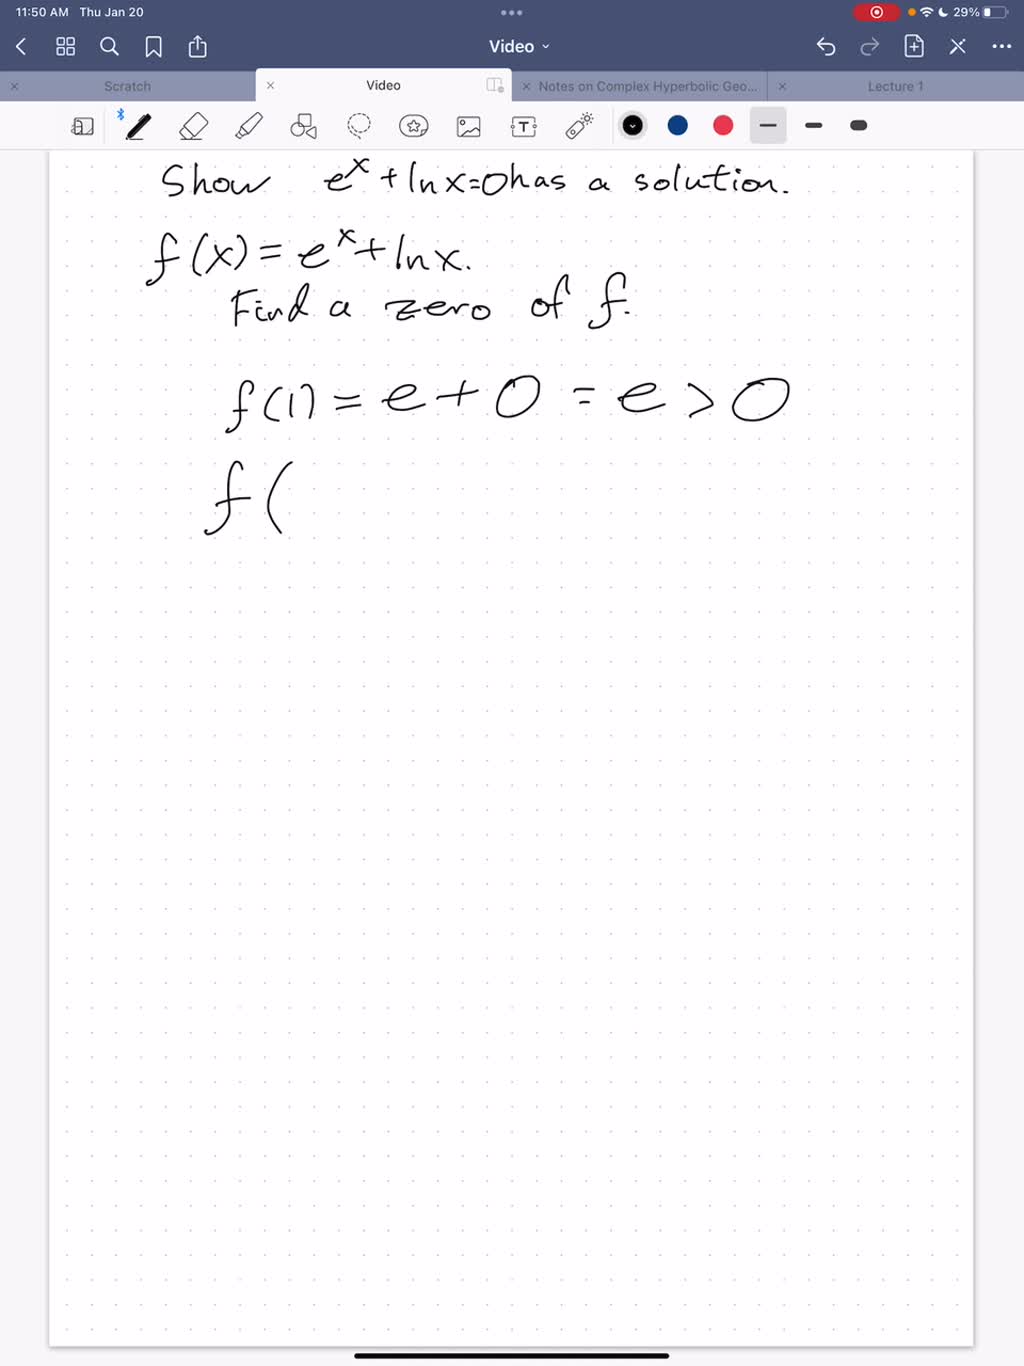 11:50 AM Thu Jan 20
29%
Video
Scratch
Video
Notes on Complex Hyperbolic Geo...
Lecture 1
Show e^x + ln x = 0 has a solution.
f(x) = e^x + ln x.
Find a zero of f.
f(1) = e + 0 = e > 0
f(